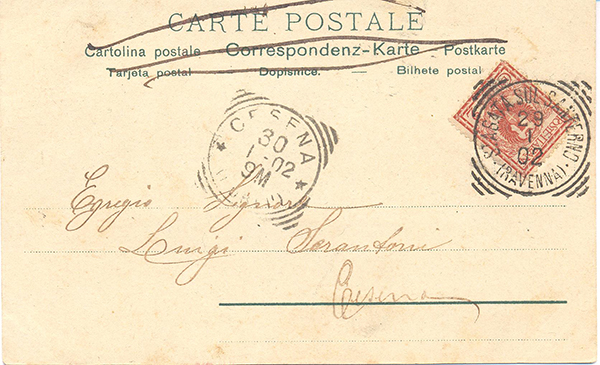 CARTE POSTALE
Cartolina postale Correspondenz-Karte Postkarte
Tarjeta postal Dopisnice. — Bilhete postal
CESENA
30
1-02
9M
S. AGATA SUL SANTERNO
29
1
02
(RAVENNA)
Egregio Signore
Luigi Sarantoni
Cesena